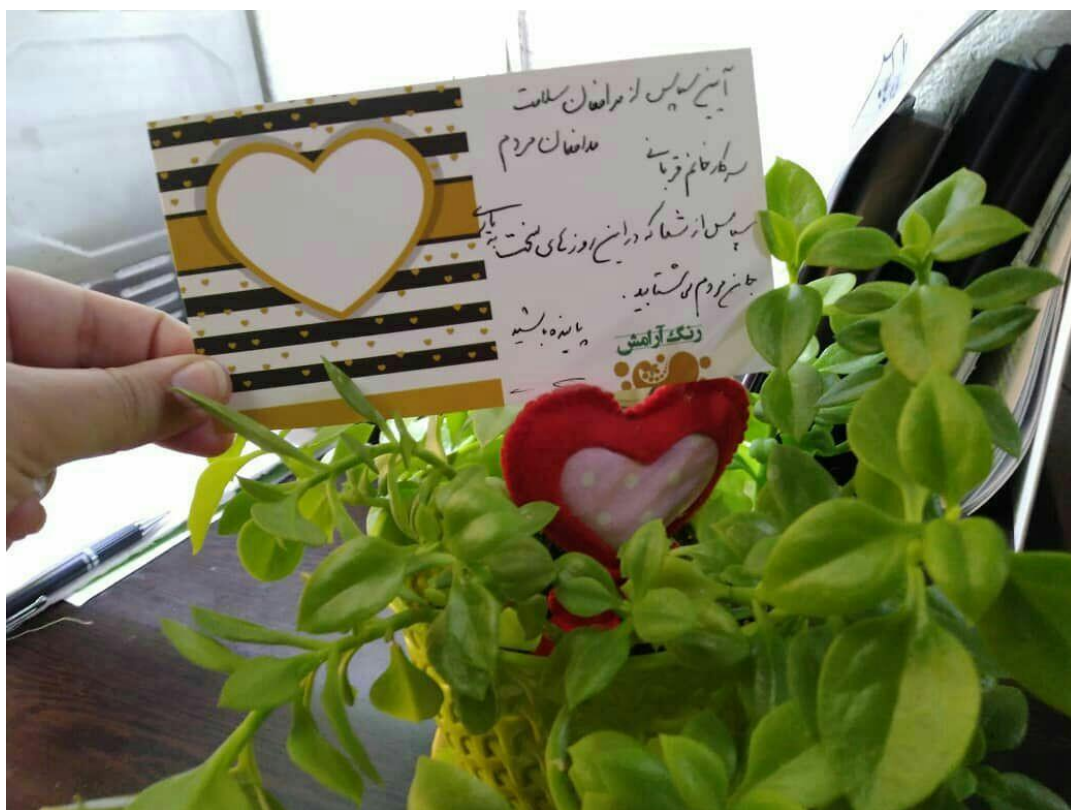 آیین سپاس از مدافعان سلامت
مدافعان مردم
سرکار خانم قربانی
سپاس از شما که در این روزهای سخت
جان مردم می‌شتابید.
پاینده باشید
رنگ آرامش